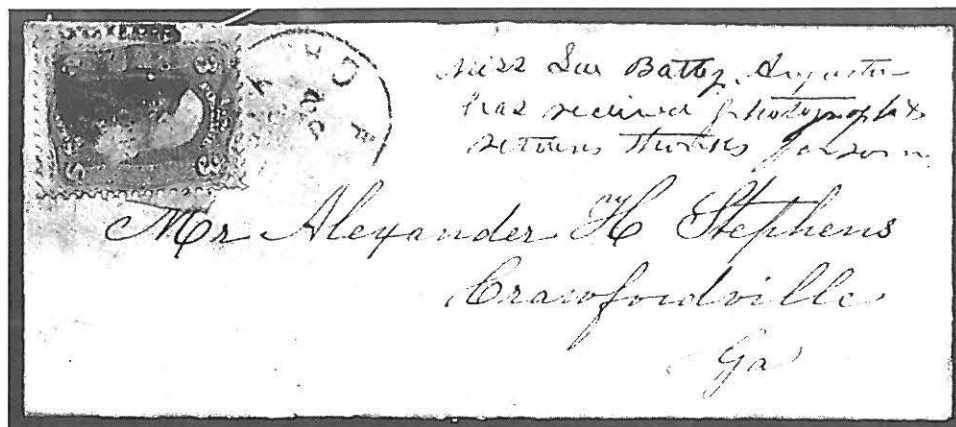 Miss Sue Battey, Augusta
has received photographs
returns thanks for
Mr Alexander H Stephens
Crawfordville
Ga